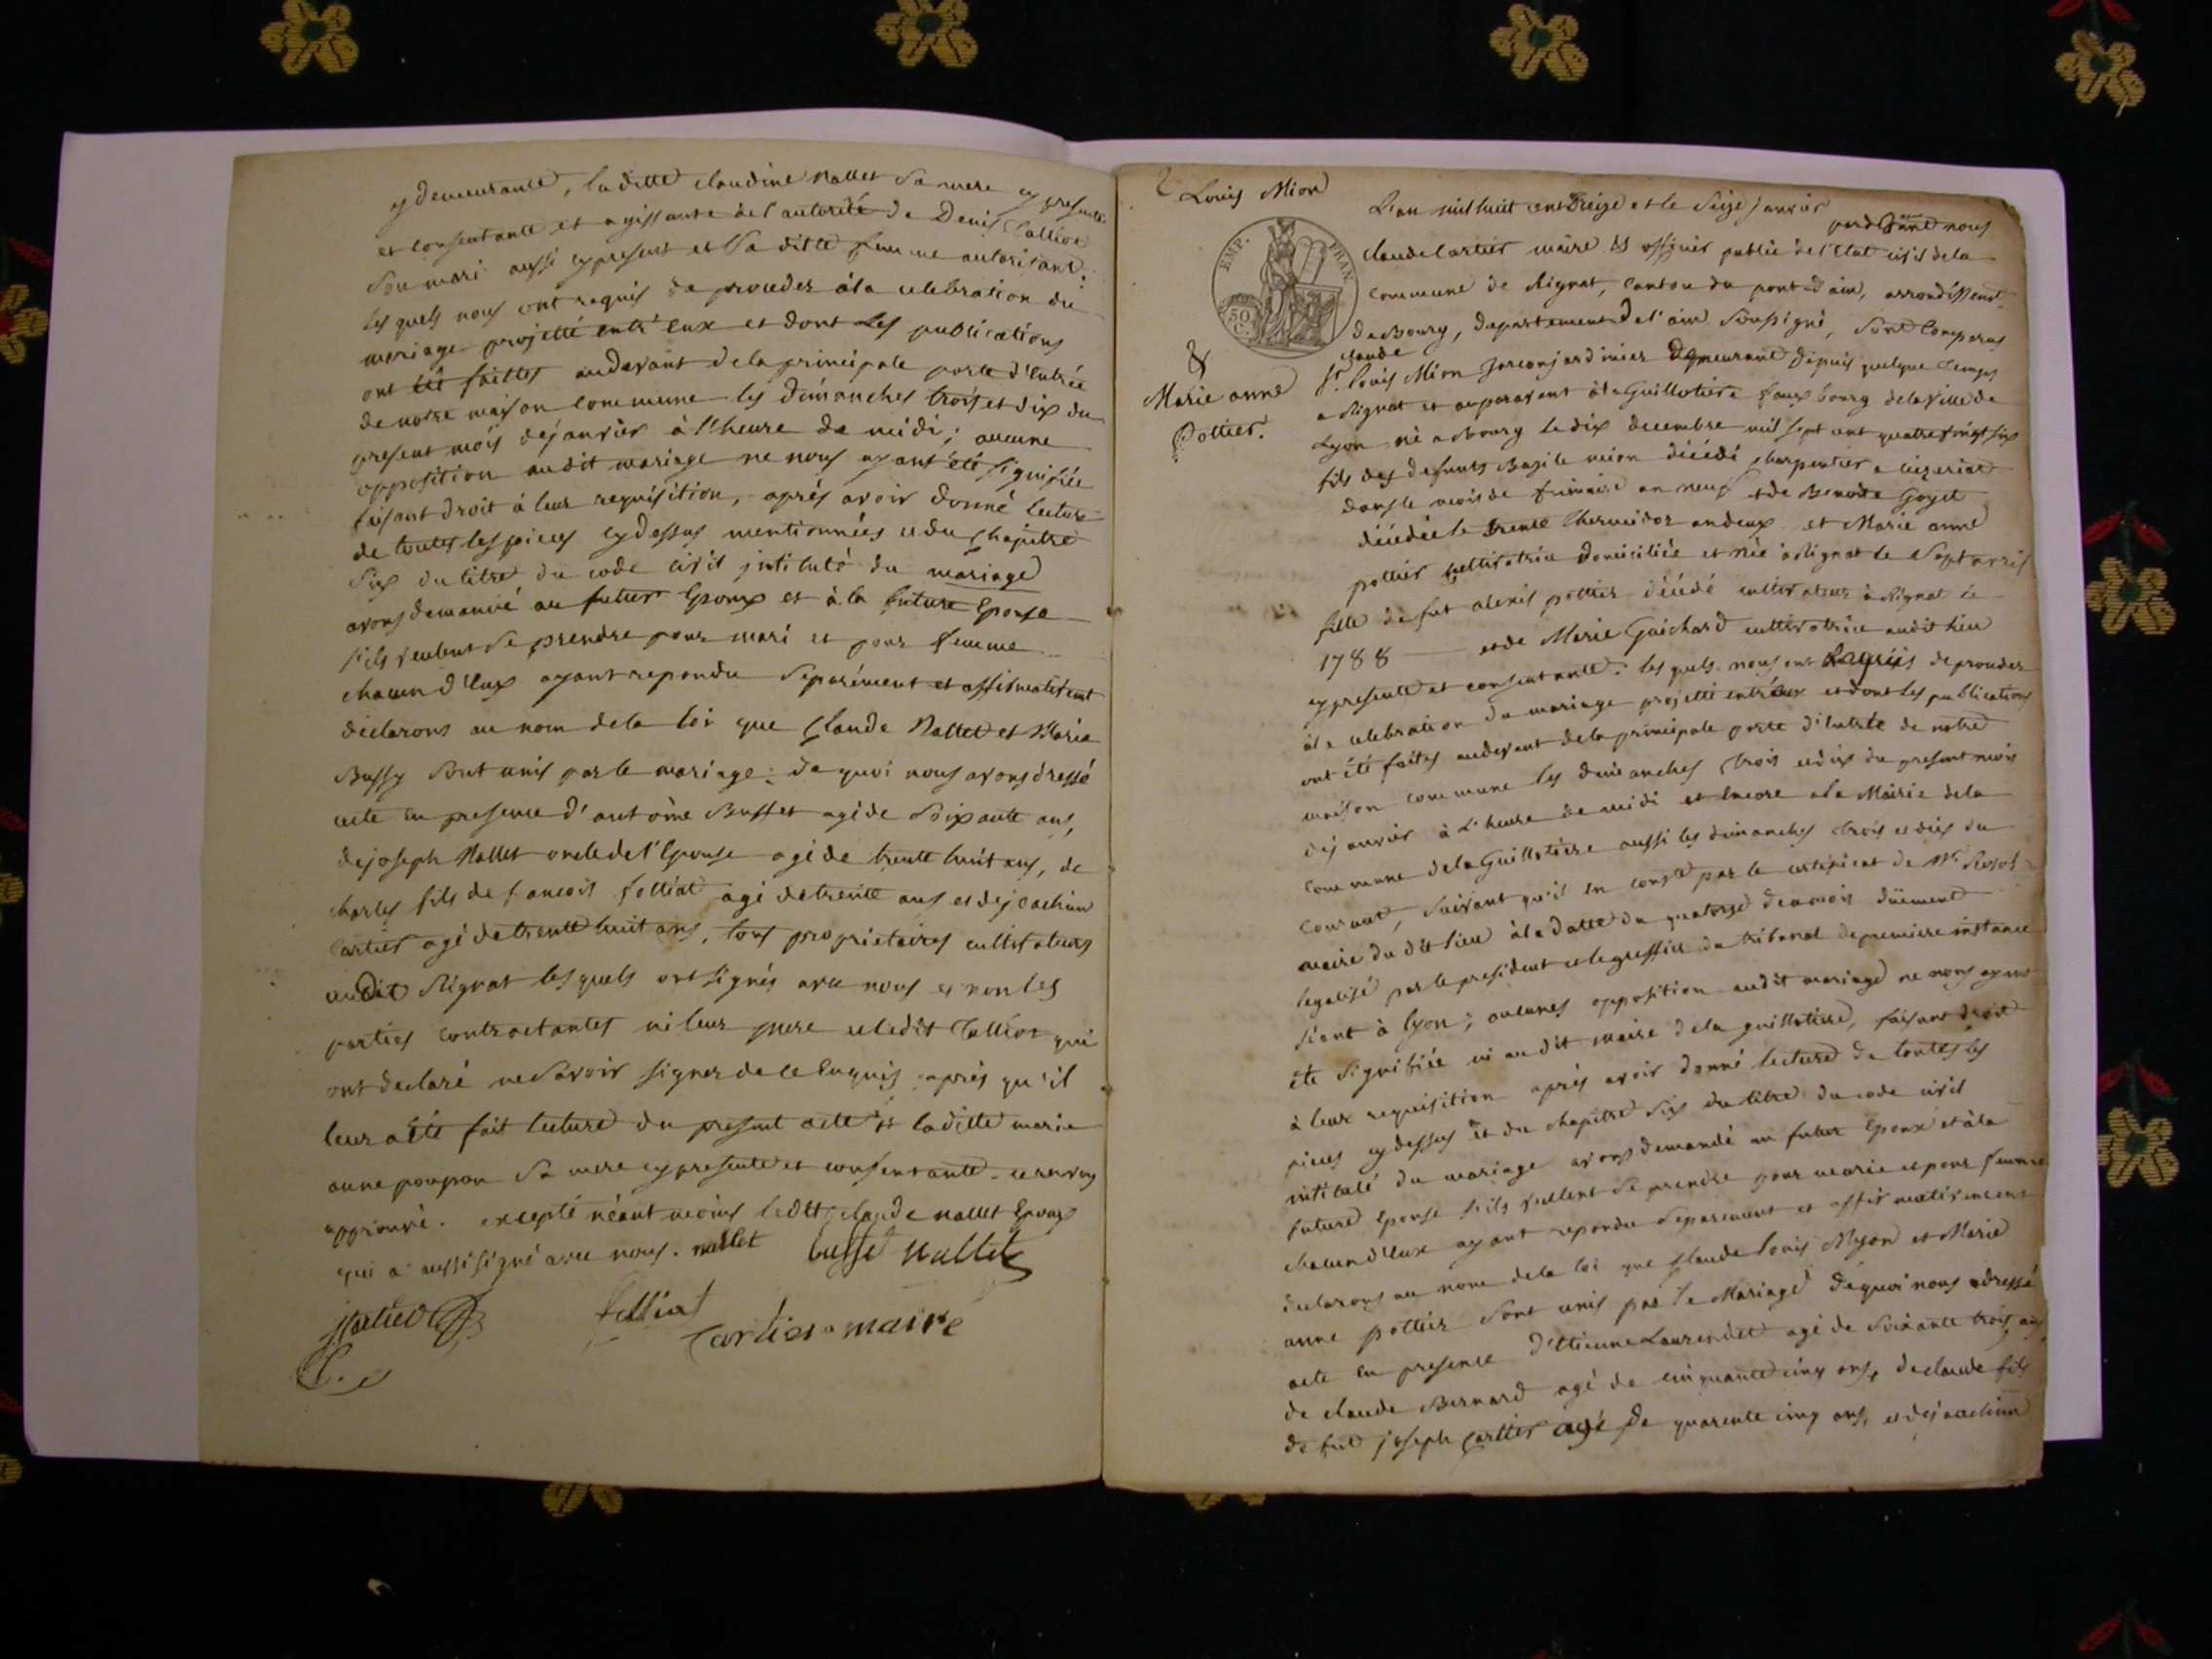 y demeurante, la ditte claudine nallet sa mere cy presente
et consentante et agissante de l'autorité de Denis Tallior
son mari aussi cy present et sa ditte femme autorisant:
lesquels nous ont requis de proceder à la celebration du
mariage projetté entr'eux et dont les publications
ont été faittes audevant de la principale porte d'entrée
de notre maison commune les dimanches trois et dix du
present mois de janvier à l'heure de midi; aucune
opposition audit mariage ne nous ayant été signifiée
faisant droit à leur requisition, aprés avoir donné lecture
de touttes les pieces cy dessus mentionnées et du chapitre
six du titre du code civil intitulé du mariage
avons demandé au futur Epoux et à la future Epouse
s'ils veulent se prendre pour mari et pour femme
chacun d'Eux ayant repondu separément et affirmativement
declarons au nom de la loi que Claude Nallet et Marie
Bussy sont unis par le mariage: de quoi nous avons dressé
acte en presence d'antoine Buffet agé de soixante ans,
de joseph Nallet oncle de l'Epouse agé de trente huit ans, de
charles fils de francois folliat agé de trente ans et de joachim
Cartier agé de trente huit ans, tous proprietaires cultivateurs
audit Rignat lesquels ont signés avec nous et non les
parties contractantes ni leur mere et ledit Tallior qui
ont declaré ne savoir signer de ce Enquis aprés qu'il
leur a été fait lecture du present acte et laditte marie
anne poupon sa mere cy presente et consentante. ce renvoy
approuvé. excepté néantmoins ledit claude nallet Epoux
qui a aussi signé avec nous. nallet Nallet
folliat
Cartier maire
Louis Mion
&
Marie anne
Pottier.
EMP. FRAN.
50 C.
L'an mil huit cent treize et le seize janvier
pardevant nous
claude Cartier maire et officier public de l'Etat civil de la
commune de Rignat, canton du pont d'ain, arrondissemt
de Bourg, departement de l'ain soussigné, sont comparus
claude
Sr. louis Mion garcon jardinier demeurant depuis quelque temps
a Rignat et auparavant à la Guillotiere fauxbourg de la ville de
Lyon né a bourg le dix decembre mil sept cent quatre vingt six
fils des defunts Bazile mion décédé charpentier a
dans le mois de frimaire an neuf et de Benoite Goyet
décédée le trente thermidor an deux et Marie anne
pottier cultivatrice domiciliée et née a Rignat le sept avril
fille de fut alexis pottier décédé cultivateur à Rignat le
1788 et de Marie Guichard cultivatrice audit lieu
cy presente et consentante. lesquels nous ont Requis de proceder
à la celebration du mariage projetté entr'eux et dont les publications
ont été faites audevant de la principale porte d'entrée de notre
maison commune les dimanches trois et dix du present mois
de janvier à l'heure de midi et encore a la Mairie de la
commune de la Guillotiere aussi les dimanches trois et dix du
courant, suivant qu'il en conste par le certificat de Mr.
maire du dit lieu à la datte du quatorze de ce mois düement
legalisé par le president et le greffier du tribunal de premiere instance
séant à lyon; aucunes opposition audit mariage ne nous ayant
été signifiée ni au dit maire de la guillotiere, faisant droit
à leur requisition aprés avoir donné lecture de toutes les
pieces cy dessus et du chapitre six du titre du code civil
intitulé du mariage avons demandé au futur Epoux et à la
future Epouse s'ils veullent se prendre pour marie et pour femme
chacun d'Eux ayant repondu separement et affirmativement
declarons au nom de la loi que Claude louis Myon et Marie
anne pottier sont unis par le Mariage de quoi nous adressé
acte en presence d'Etienne Laurendet agé de soixante trois ans
de claude Bernard agé de cinquante cinq ans, de claude fils
de fut joseph Cartier agé de quarente cinq ans, et de joachim